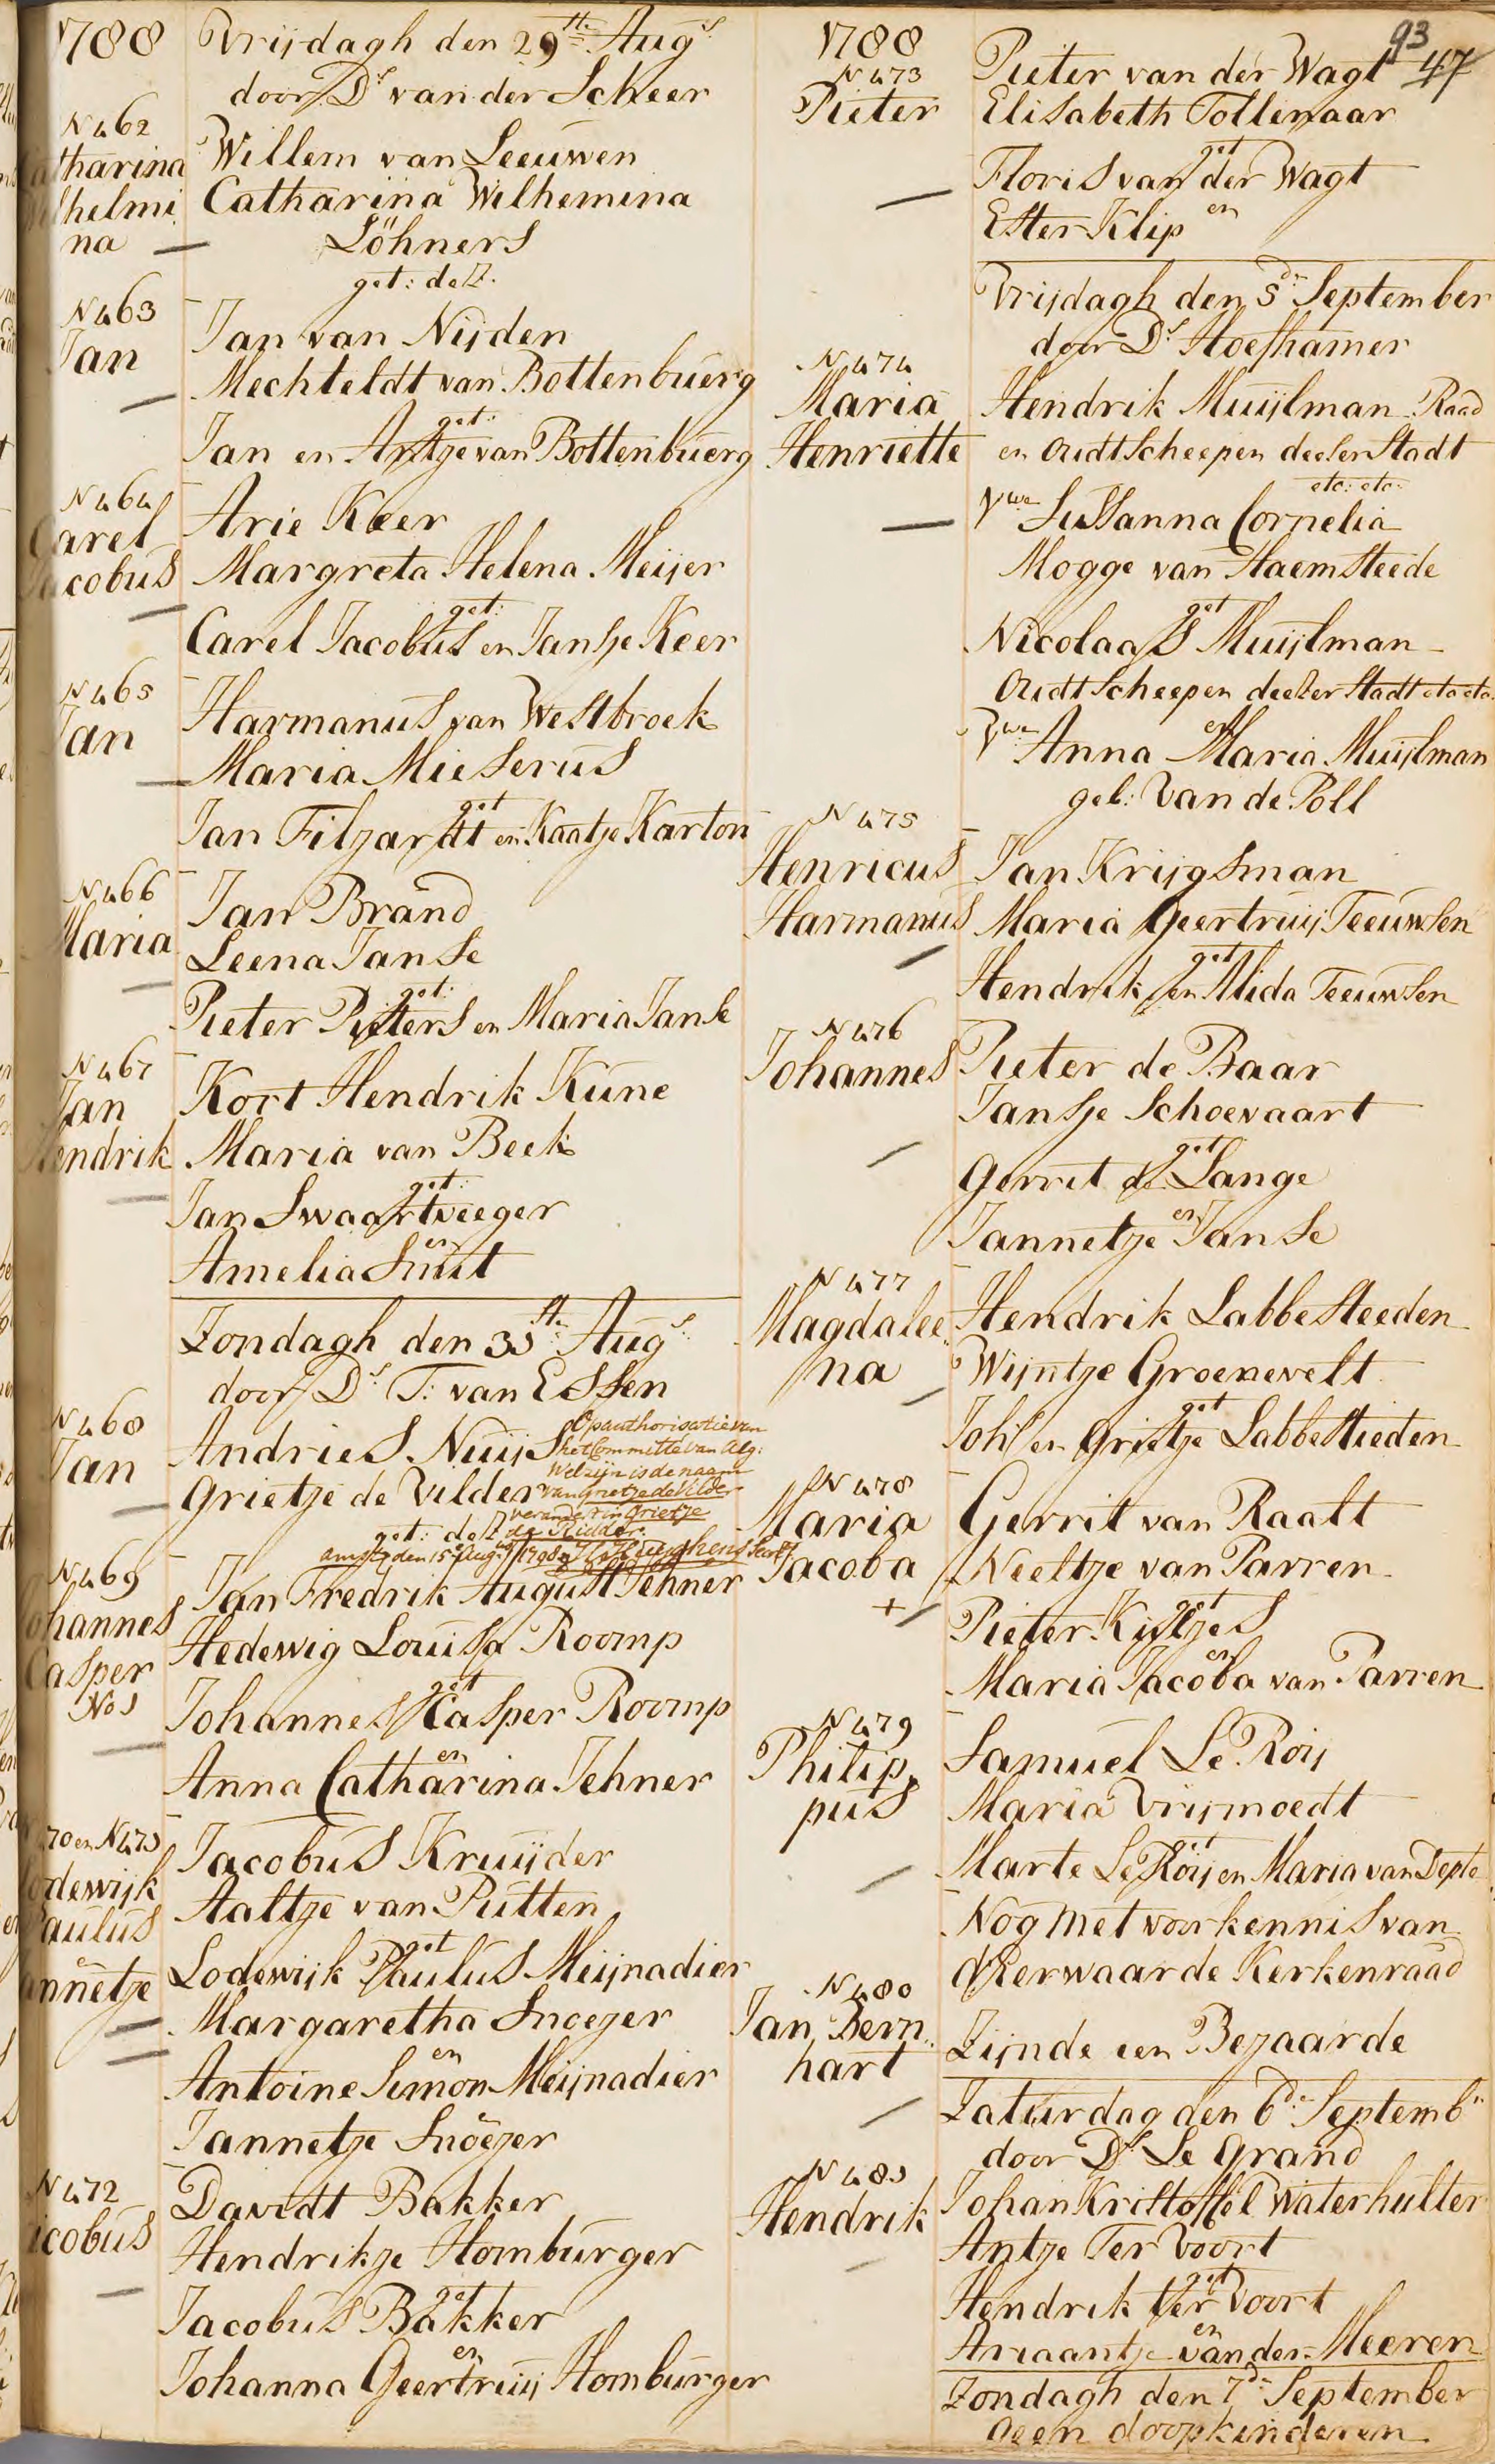 1788
Vrijdagh den 29ste Augs
door Ds van der Scheer
N 462
atharina
helmi
na
Willem van Leeuwen
Catharina Wilhemina
Löhners
get: delt.
N 463
Jan
Jan van Nijden
Mechteldt van Bottenbuerg
get:
Jan en Antje van Bottenbuerg
N 464
Carel
Jacobus
Arie Keer
Margreta Helena Meijer
get:
Carel Jacobus en Jansje Keer
N 465
Jan
Harmanus van Westbroek
Maria Mieserus
get
Jan Filzardt en Kaatje Karton
N 466
Maria
Jan Brand
Leena Janse
get:
Pieter Pieters en Maria Janse
N 467
Jan
Hendrik
Kort Hendrik Kune
Maria van Beek
get:
Jan Swaartveeger
en
Amelia Smit
Zondagh den 31ste Augs
door Ds T: van Essen
N 468
Jan
Andries Nuijs
Grietje de Vilder
get: delt
Op authorisatie van
het Committé van Alg:
Welzijn is de naam
van Grietje de Vilder
verandert in Grietje
de Ridder.
Amst. den 15 Aug: 1798
N 469
Johannes
Casper
Nos
Jan Fredrik August Jehner
Hedewig Louisa Roomp
get
Johannes Casper Roomp
en
Anna Catharina Jehner
70 en N 471
odewijk
Paulus
en
annetje
Jacobus Kruijder
Aaltje van Putten
get
Lodewijk Paulus Meijnadier
Margaretha Snoejer
en
Antoine Simon Meijnadier
Jannetje Snoejer
N 472
acobus
Davidt Bakker
Hendrikje Homburger
get
Jacobus Bakker
en
Johanna Geertruij Homburger
93
47
1788
N 473
Pieter
Pieter van der Wagt
Elisabeth Tollenaar
get
Floris van der Wagt
en
Ester Klip
Vrijdagh den 5de September
door Ds Hoefhamer
N 474
Maria
Henriette
Hendrik Muijlman Raad
en Oudt Scheepen deeser Stadt
etc: etc:
Vwe Sussanna Cornelia
Mogge van Haemsteede
get
Nicolaas Muijlman
Oudt Scheepen deeser Stadt etc etc.
en
Vwe Anna Maria Muijlman
geb: Van de Poll
N 475
Henricus
Harmanus
Jan Krijgsman
Maria Geertruij Teeuwsen
get
Hendrik en Alida Teeuwsen
N 476
Johannes
Pieter de Baar
Jansje Schoevaart
get
Gerrit de Lange
en
Jannetje Janse
N 477
Magdalee
na
Hendrik Labbesteeden
Wijntje Groenevelt
get
Johs en Grietje Labbestieden
N 478
Maria
Jacoba
+
Gerrit van Raalt
Neeltje van Parren
get
Pieter Kistjes
en
Maria Jacoba van Parren
N 479
Philip
pus
Samuel Le Roij
Maria Vrijmoedt
get
Marte Le Roij en Maria van Depte
Nog met voorkennis van
d'Eerwaarde Kerkenraad
N 480
Jan Bern
hart
Zijnde een Bejaarde
Zaturdag den 6de Septembr
door Ds Le Grand
N 481
Hendrik
Johan Kristoffel Waterhulter
Antje Ter Voort
get
Hendrik ter Voort
en
Ariaantje van der Meeren
Zondagh den 7de September
geen doopkinderen